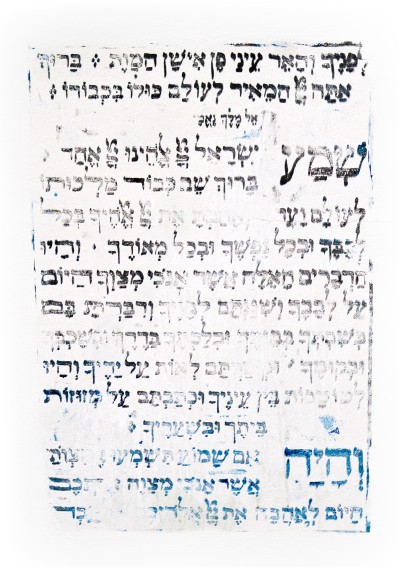 לְפָנֶיךָ וְהָאֵר עֵינַי פֶּן אִישַׁן הַמָּוֶת : בָּרוּךְ
אַתָּה יְיָ הַמֵּאִיר לְעוֹלָם כּוּלּוֹ בִּכְבוֹדוֹ :
אל מלך נאמן
שְׁמַע יִשְׂרָאֵל יְיָ אֱלֹהֵינוּ יְיָ אֶחָד
בָּרוּךְ שֵׁם כְּבוֹד מַלְכוּתוֹ
לְעוֹלָם וָעֶד אֵת יְיָ אֱלֹהֶיךָ בְּכָל
לְבָבְךָ וּבְכָל נַפְשְׁךָ וּבְכָל מְאוֹדֶךָ . וְהָיוּ
הַדְּבָרִים הָאֵלֶּה אֲשֶׁר אָנֹכִי מְצַוְּךָ הַיּוֹם
עַל לְבָבֶךָ וְשִׁנַּנְתָּם לְבָנֶיךָ וְדִבַּרְתָּ בָּם
בְּשִׁבְתְּךָ בְּבֵיתֶךָ וּבְלֶכְתְּךָ בַדֶּרֶךְ וּבְשָׁכְבְּךָ
וּבְקוּמֶךָ וּקְשַׁרְתָּם לְאוֹת עַל יָדֶיךָ וְהָיוּ
לְטוֹטָפוֹת בֵּין עֵינֶיךָ וּכְתַבְתָּם עַל מְזוּזוֹת
בֵּיתֶךָ וּבִשְׁעָרֶיךָ :
וְהָיָה אִם שָׁמוֹעַ תִּשְׁמְעוּ מִצְוֹתַי
אֲשֶׁר אָנֹכִי מְצַוֶּה אֶתְכֶם
הַיּוֹם לְאַהֲבָה אֶת יְיָ